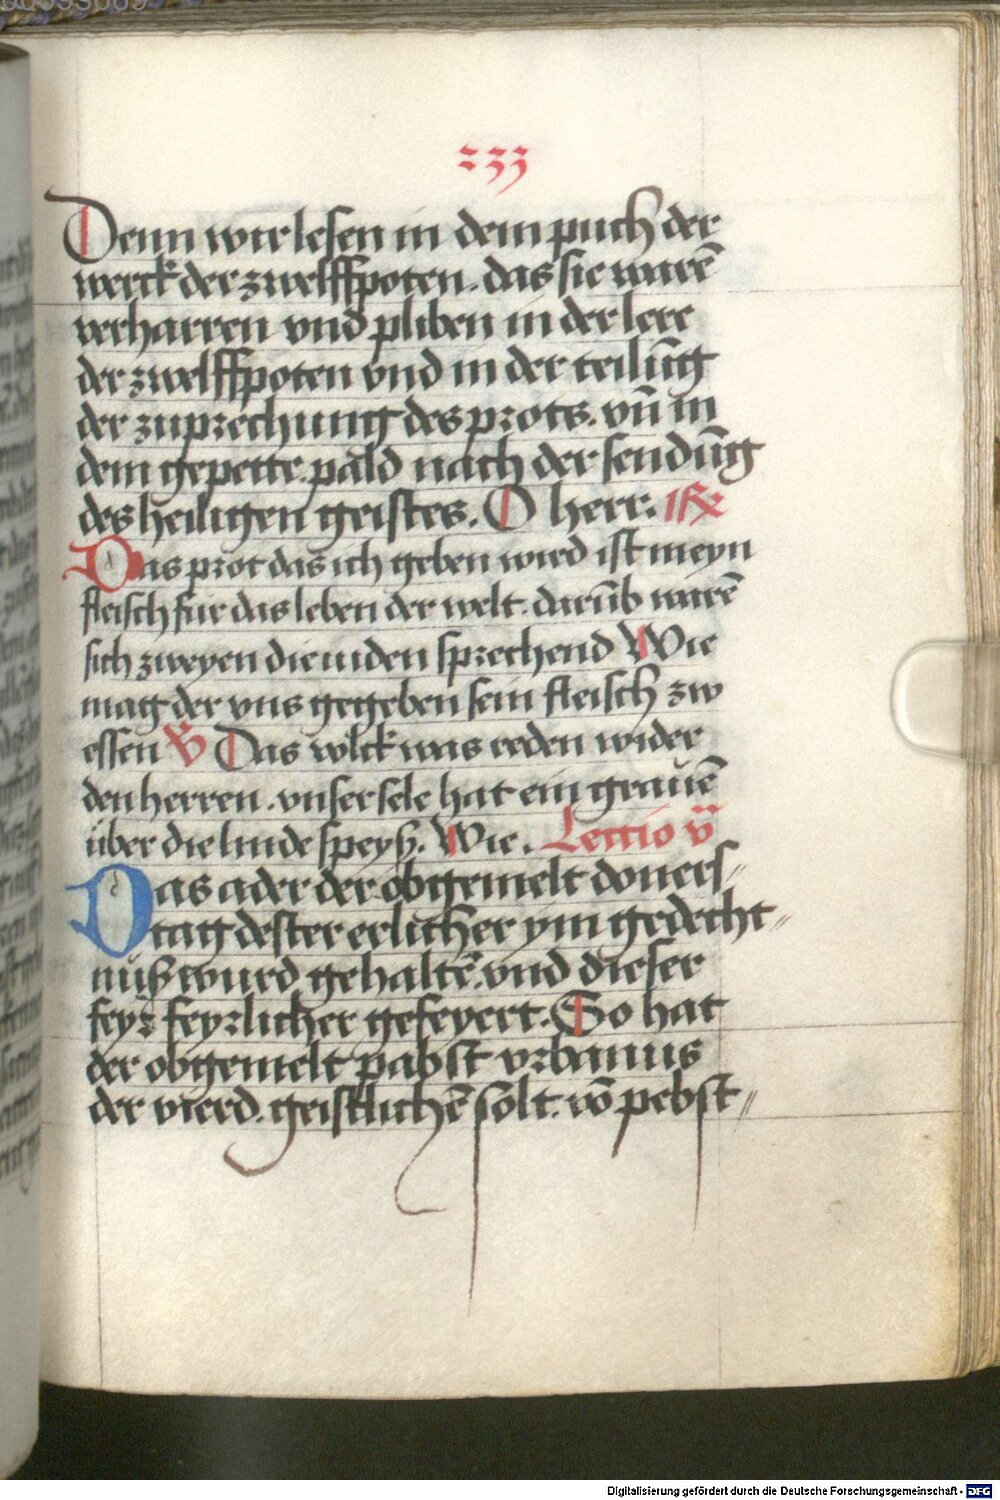 233
Denn wir lesen in dem puch der
werck der zwelffpoten. das sie warē
verharren vnd pliben in der lere
der zwelffpoten vnd in der teilūg
der zuprechung des prots. vn̄ in
dem gepette. pald nach der sendūg
des heiligen geistes. O herr.
Das prot das ich geben wird ist meyn
fleisch fur das leben der welt. darūb warē
sich zweyen die iuden sprechend Wie
mag der vns gegeben sein fleisch zw
essen V̄ Das volck was reden wider
den herren. vnser sele hat ein grauē
über die linde speyß. Wie. Lectio v̈
Das ader der obgemelt doners⸗
tag dester erlicher ym gedecht⸗
nuß wurd gehaltē. vnd dieser
feyr feyrlicher gefeyert. So hat
der obgemelt pabst vrbanus
der vierd. geistlichē solt. vō pebst⸗
Digitalisierung gefördert durch die Deutsche Forschungsgemeinschaft - DFG